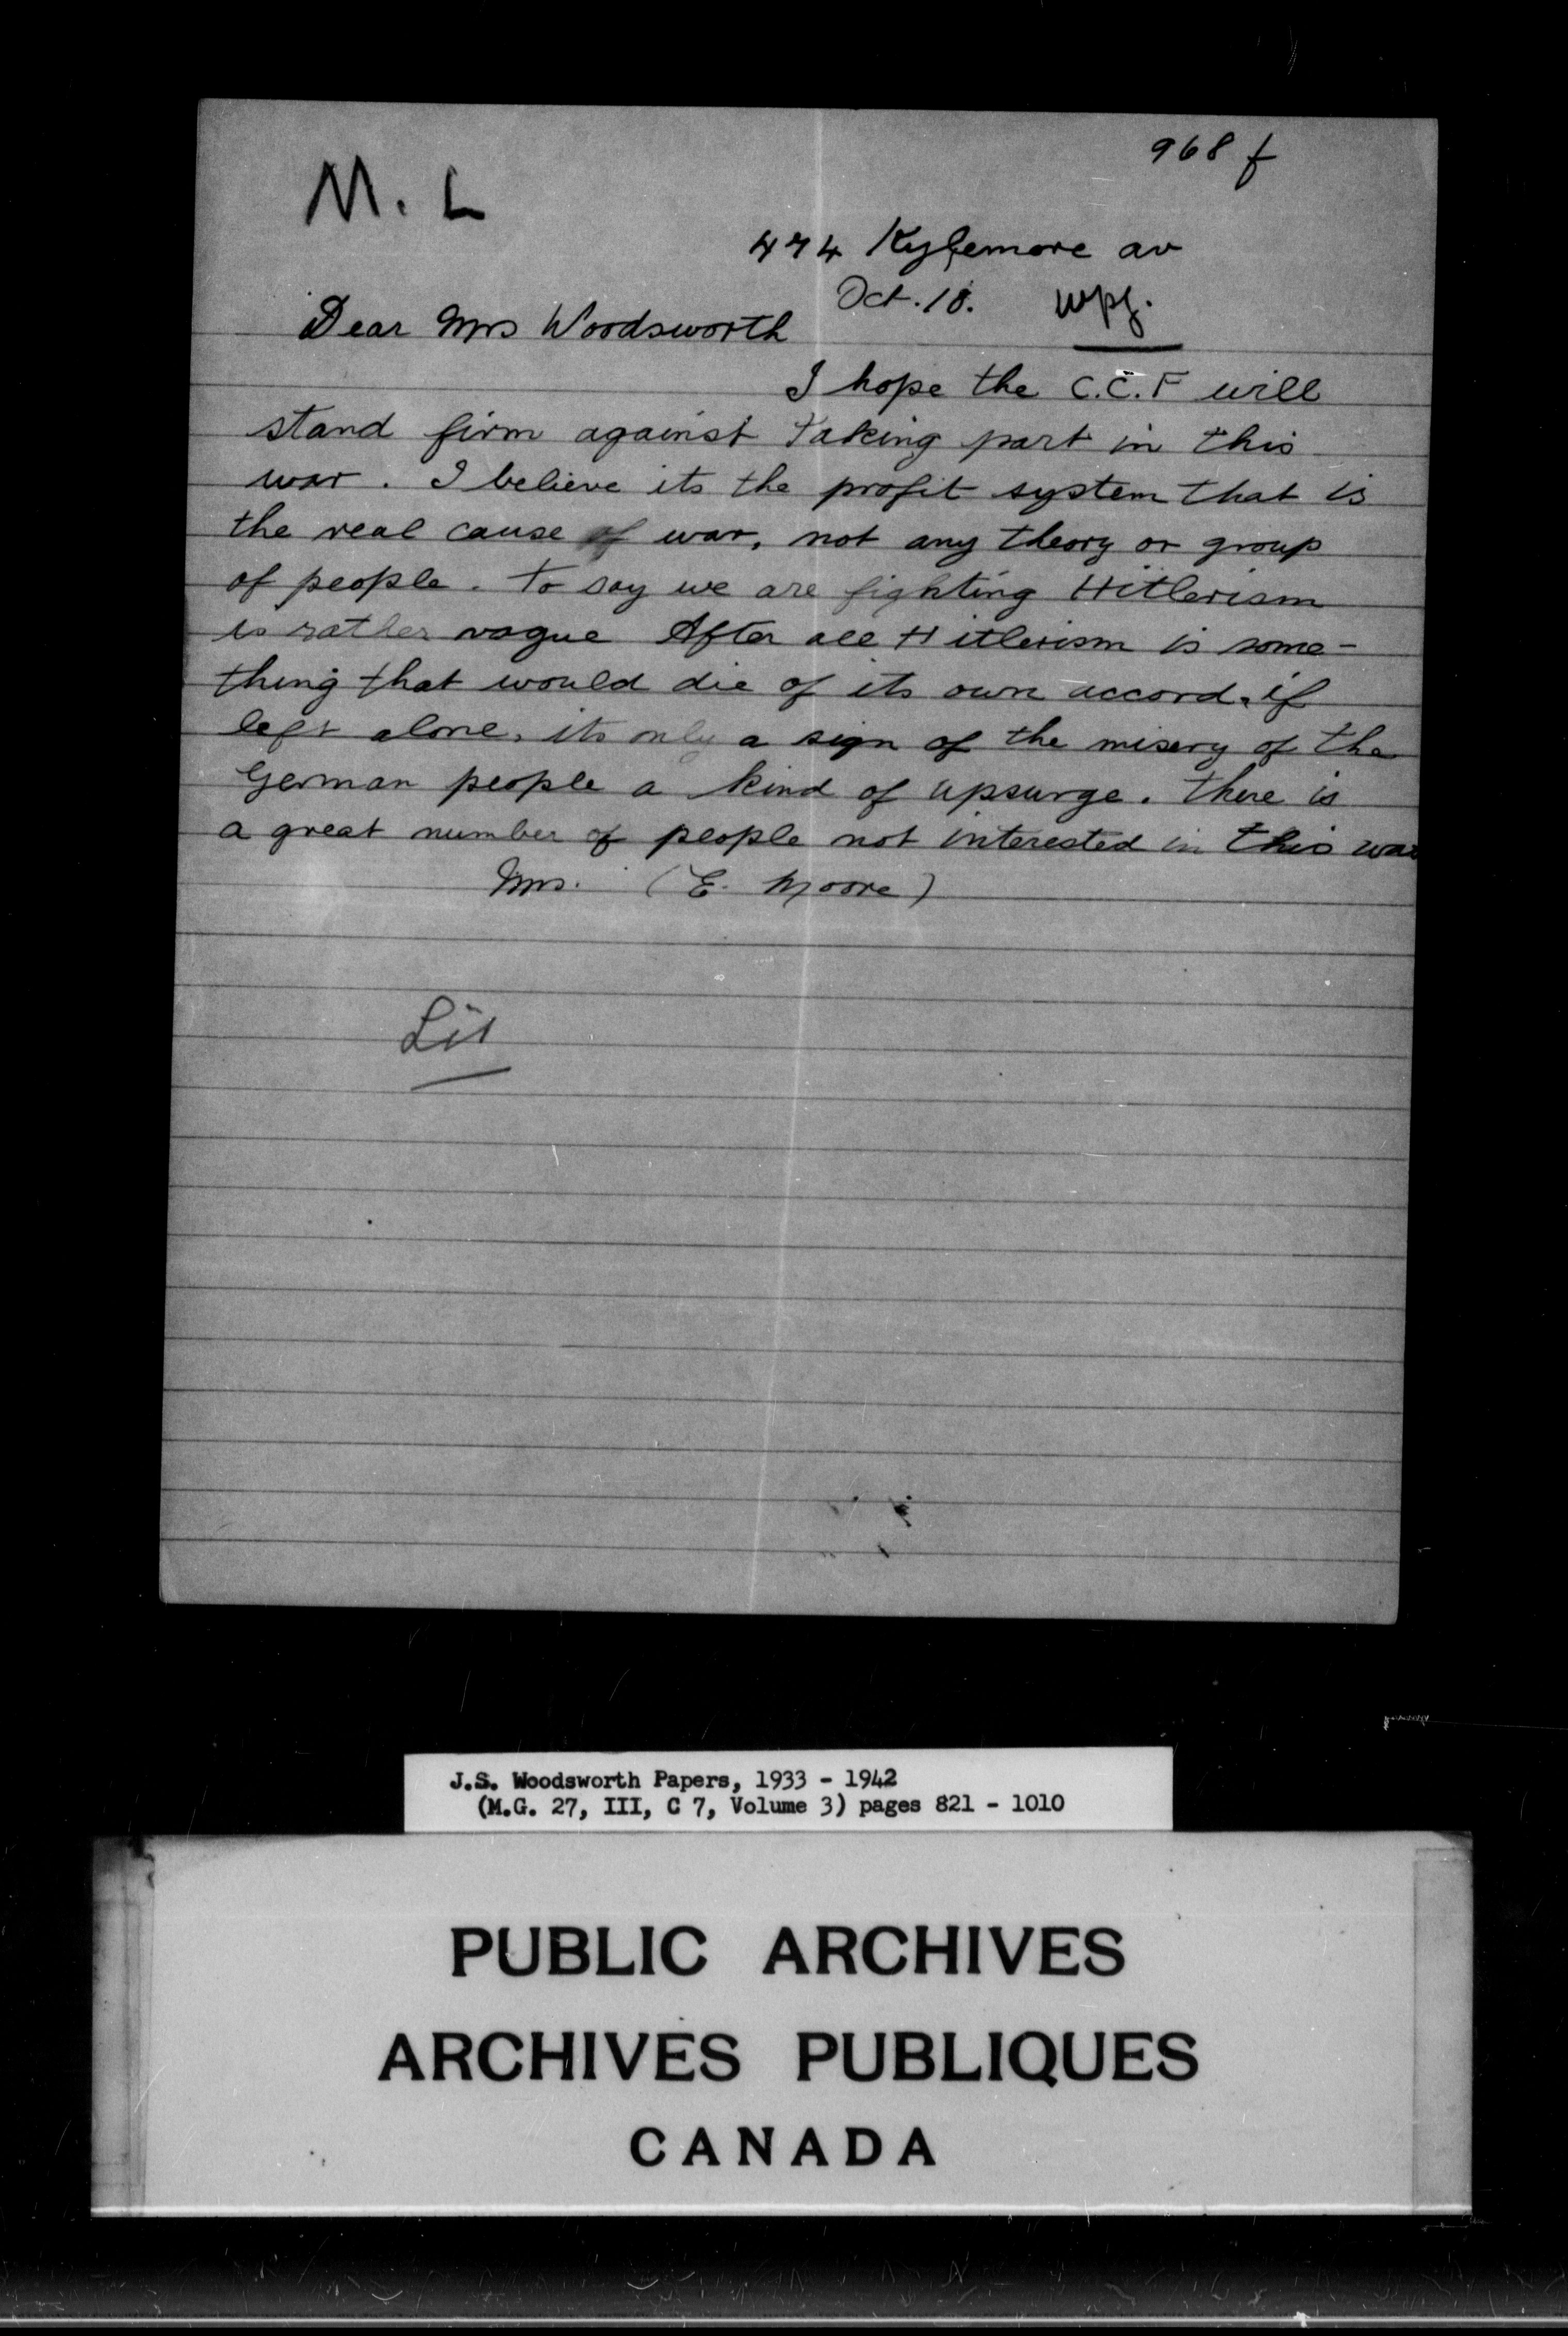 968 f
M. L
474 Kylemore av
Oct. 18. Wpg.
Dear Mrs Woodsworth
I hope the C.C.F will
stand firm against taking part in this
war. I believe its the profit system that is
the real cause of war, not any theory or group
of people. To say we are fighting Hitlerism
is rather vague After all Hitlerism is some-
thing that would die of its own accord, if
left alone, its only a sign of the misery of the
German people a kind of upsurge. there is
a great number of people not interested in this war
Mrs. (E. Moore)
Lit
J.S. Woodsworth Papers, 1933 - 1942
(M.G. 27, III, C 7, Volume 3) pages 821 - 1010
PUBLIC ARCHIVES
ARCHIVES PUBLIQUES
CANADA